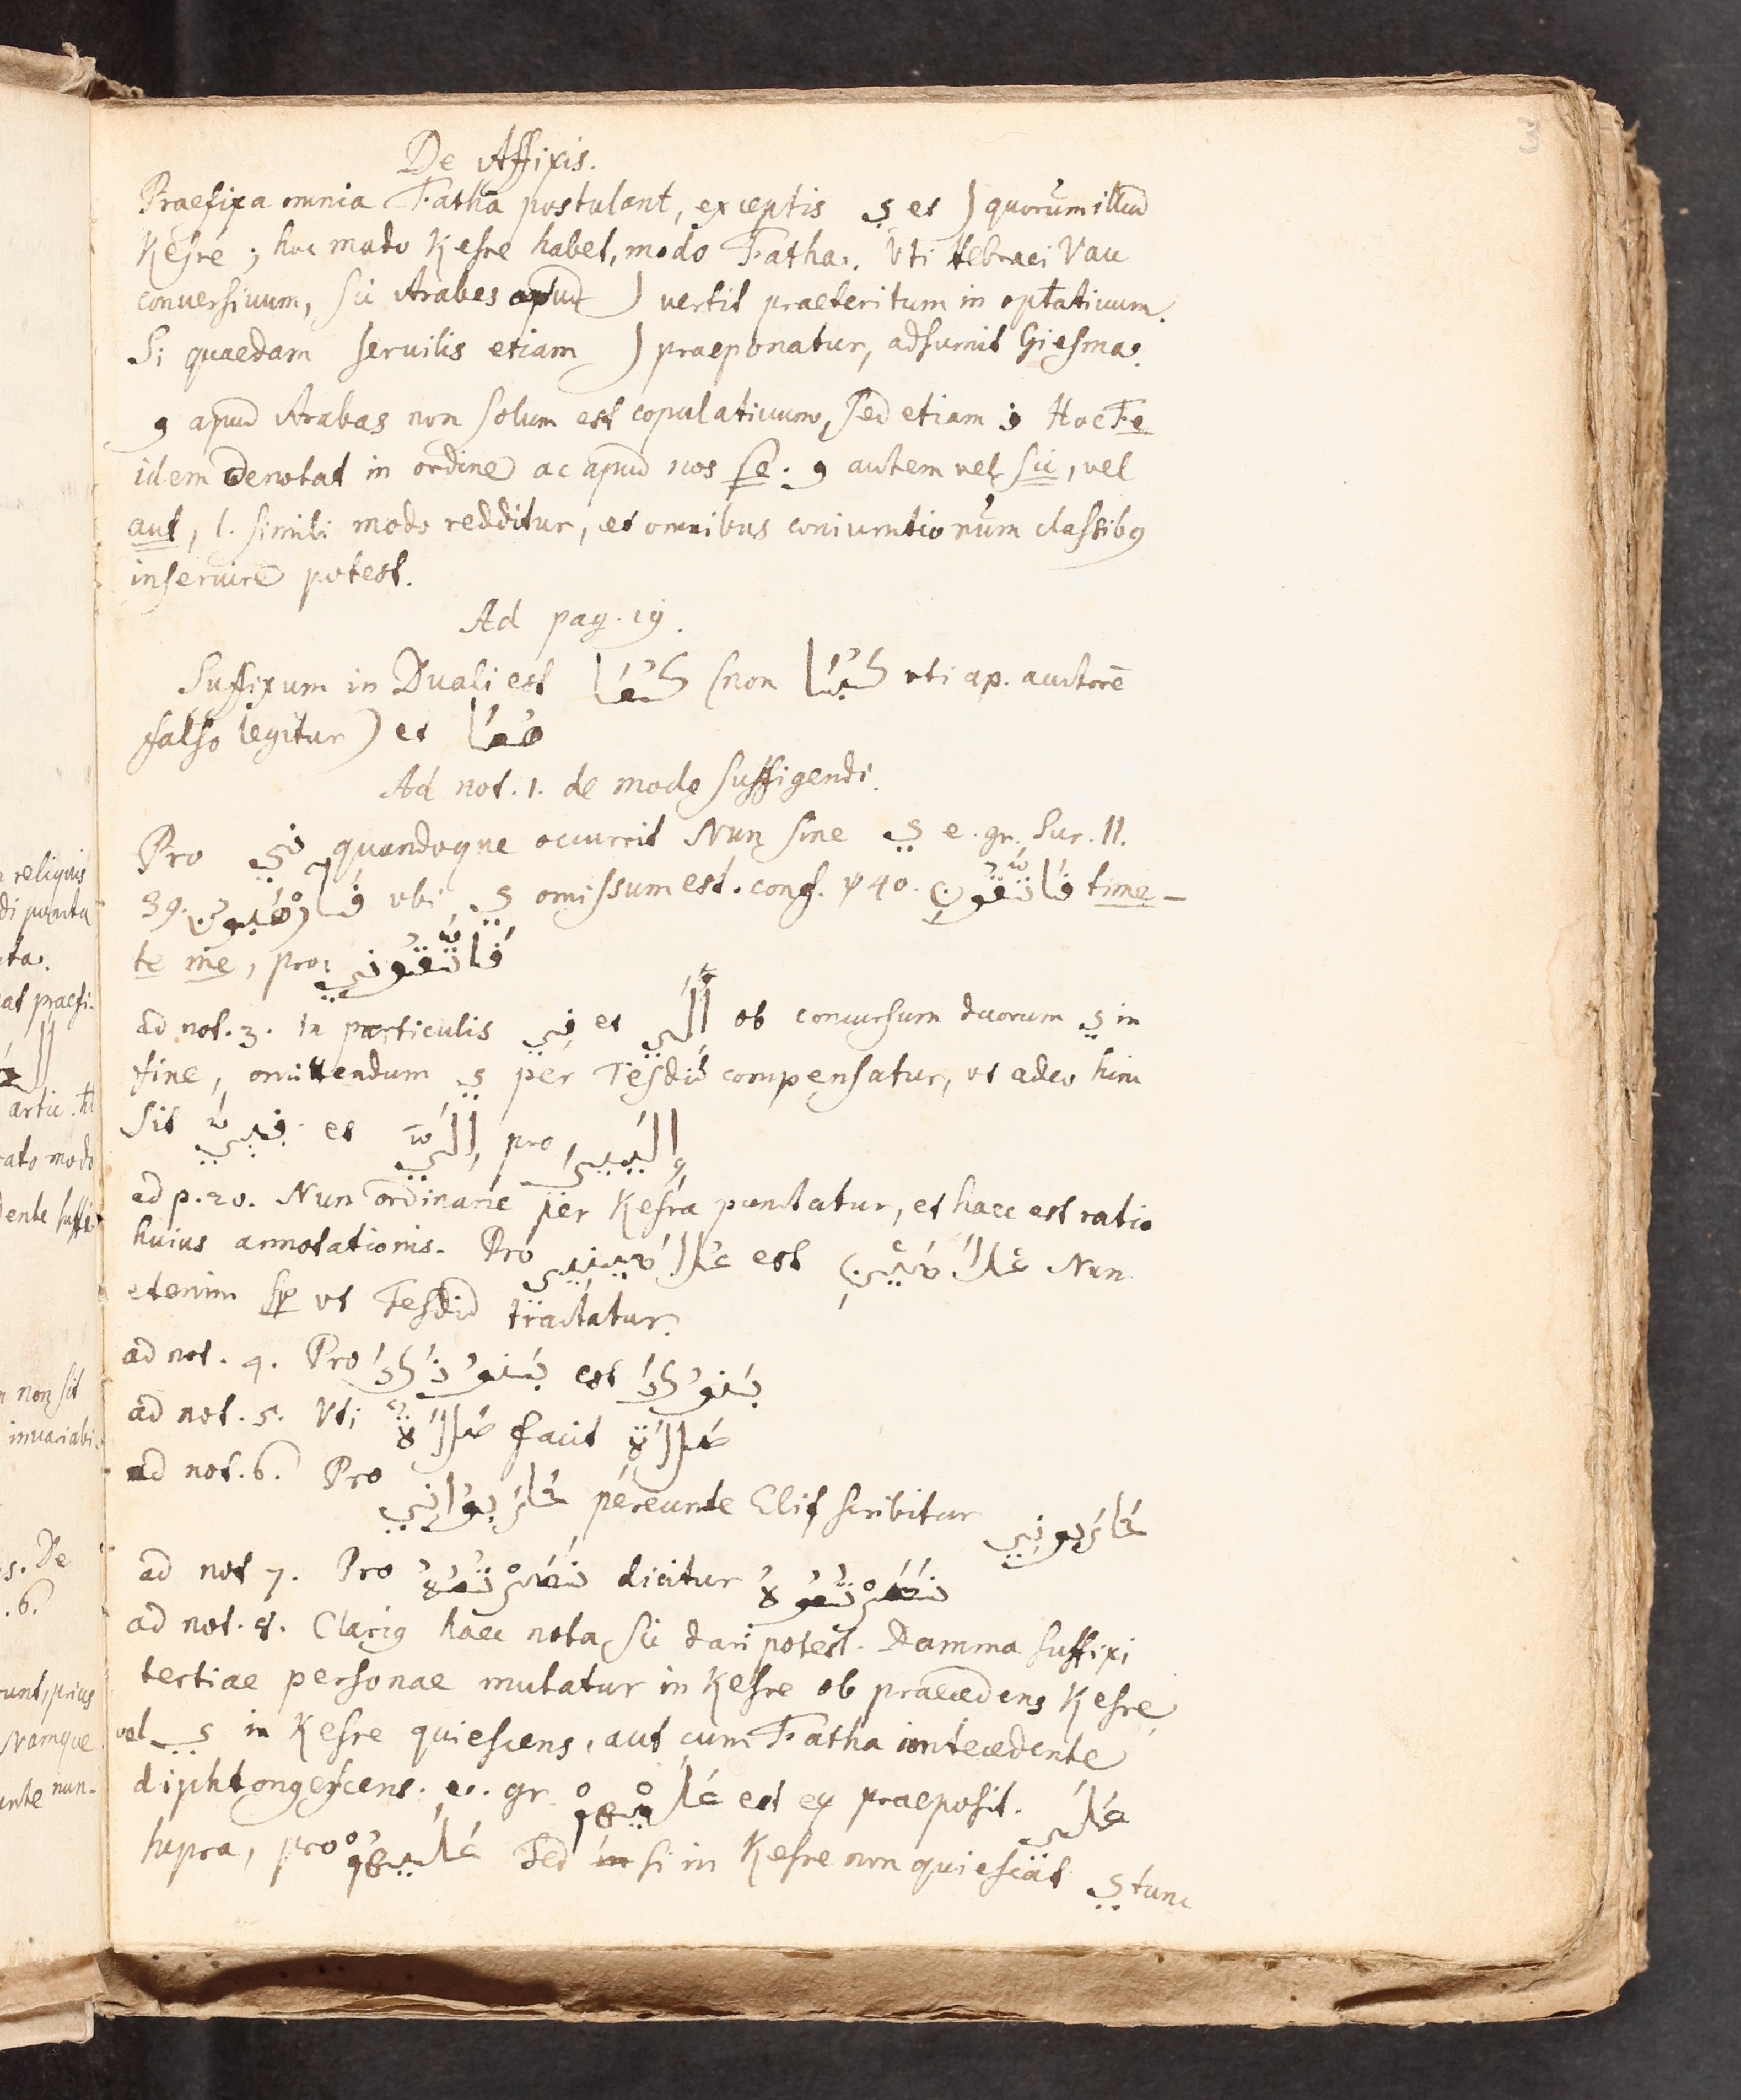 3
De Affixis.
Praefixa omnia Fatha postulant, exceptis ي et ل quorum illud
Kesre; hoc modo Kesre habet, modo Fatha. Uti Hebraei Vau
conversivum, sic Arabes apud ل vertit praeteritum in optativum.
Si quaedam servilis etiam ل praeponatur, adsumit Giesma.
و apud Arabas non solum est copulativum, sed etiam ف Hoc Fe
idem denotat in ordine ac apud nos se. و autem vel sic, vel
aut, l. simili modo redditur, et omnibus coniunctionum classibg
inservire potest.
Ad pag. 19.
Suffixum in Duali est كُمَا (non كُنَا uti ap. auctorē
falso legitur) et هُمَا
Ad not. 1. de modo suffigendi.
Pro ني quandoque occurrit Nun sine ي e. gr. Sur. II.
39. فَارْهَبُونِ ubi ي omissum est. conf. ψ 40. فَاتَّقُونِ time-
te me, pro: فَاتَّقُونِي
ad not. 3. In particulis فِي et إلَي ob concursum duorum ي in
fine, omittendum ي per Tesdid compensatur, ut adeo hinc
sit فِيّ et إِلَيّ pro إليي
ad p. 20. Nun ordinarie per Kesra punctatur, et haec est ratio
huius annotationis. Pro est Nun
etenim sp ut Tesdid tractatur.
ad not. 4. Pro بَنُونَكَ est بَنُوكَ
ad not. 5. Uti facit
ad not. 6. Pro pereunte Elif scribitur
ad not 7. Pro نَصَرْتُمْهُ dicitur نَصَرْتُمُوهُ
ad not. 8. Clarig haec nota sic dari potest. Damma suffixi
tertiae personae mutatur in Kesre ob praecedens Kesre
vel ي in Kesre quiescens, aut cum Fatha antecedente
diphtongescens. e. gr. عَلَيْهِمْ est ex praeposit. عَلَي
supra, pro عَلَيْهُمْ Sed si in Kesre non quiescat ي tunc